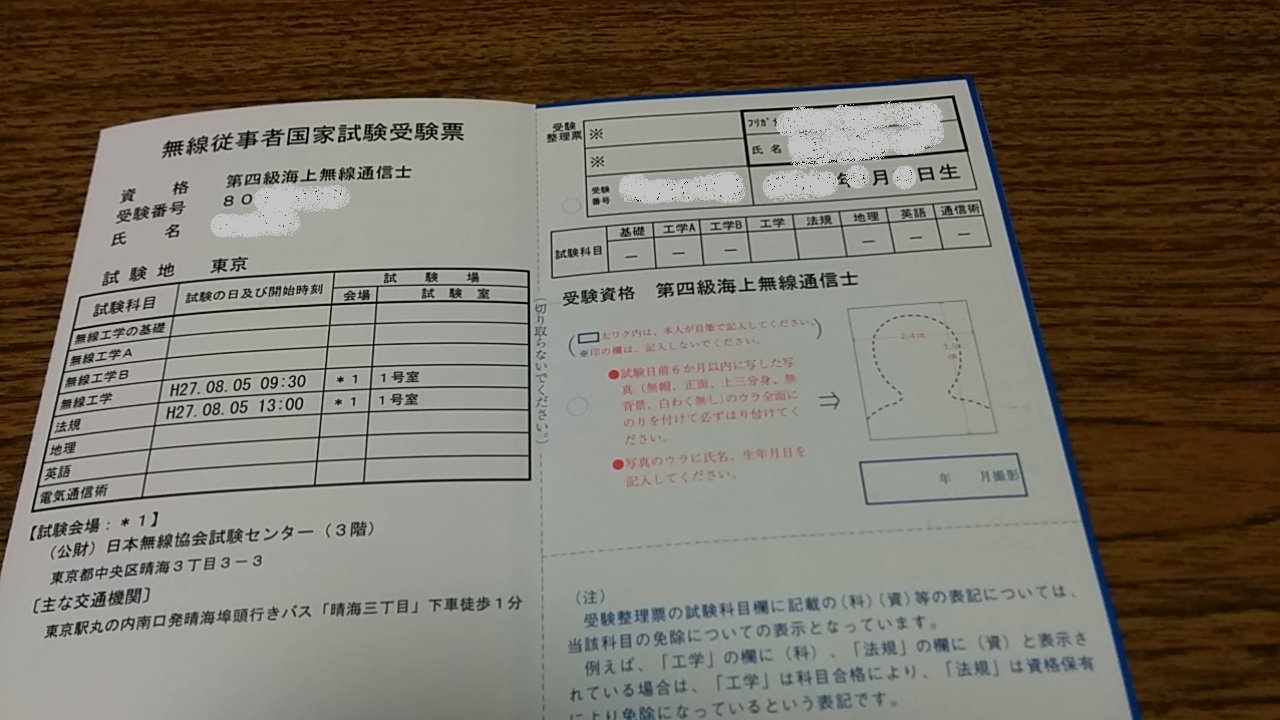 無線従事者国家試験受験票
資格 第四級海上無線通信士
受験番号 80
氏名
試験地 東京
試験科目 試験の日及び開始時刻 試験場
会場 試験室
無線工学の基礎
無線工学A
無線工学B
無線工学 H27.08.05 09:30 *1 1号室
法規 H27.08.05 13:00 *1 1号室
地理
英語
電気通信術
【試験会場:*1】
(公財)日本無線協会試験センター(3階)
東京都中央区晴海3丁目3-3
〔主な交通機関〕
東京駅丸の内南口発晴海埠頭行きバス「晴海三丁目」下車徒歩1分
(切り取らないでください。)
受験整理票 ※
※
フリガナ
氏名
受験番号
年 月 日生
試験科目 基礎 工学A 工学B 工学 法規 地理 英語 通信術
― ― ― ― ― ―
受験資格 第四級海上無線通信士
(太ワク内は、本人が自筆で記入してください。
※印の欄は、記入しないでください。)
●試験日前6か月以内に写した写
真(無帽、正面、上三分身、無
背景、白わく無し)のウラ全面に
のりを付けて必ずはり付けてく
ださい。
⇒
●写真のウラに氏名、生年月日を
記入してください。
年 月撮影
(注)
受験整理票の試験科目欄に記載の(科)(資)等の表記については、
当該科目の免除についての表示となっています。
例えば、「工学」の欄に(科)、「法規」の欄に(資)と表示さ
れている場合は、「工学」は科目合格により、「法規」は資格保有
により免除になっているという表記です。